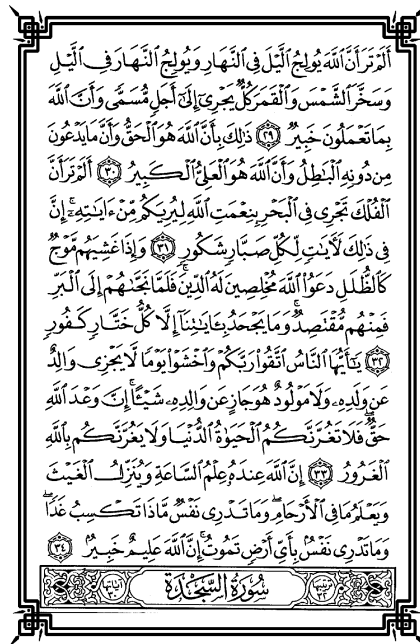 أَلَمْ تَرَ أَنَّ ٱللَّهَ يُولِجُ ٱلَّيْلَ فِى ٱلنَّهَارِ وَيُولِجُ ٱلنَّهَارَ فِى ٱلَّيْلِ
وَسَخَّرَ ٱلشَّمْسَ وَٱلْقَمَرَ كُلٌّ يَجْرِىٓ إِلَىٰٓ أَجَلٍ مُّسَمًّى وَأَنَّ ٱللَّهَ
بِمَا تَعْمَلُونَ خَبِيرٌ ٢٩ ذَٰلِكَ بِأَنَّ ٱللَّهَ هُوَ ٱلْحَقُّ وَأَنَّ مَا يَدْعُونَ
مِن دُونِهِ ٱلْبَـٰطِلُ وَأَنَّ ٱللَّهَ هُوَ ٱلْعَلِىُّ ٱلْكَبِيرُ ٣٠ أَلَمْ تَرَ أَنَّ
ٱلْفُلْكَ تَجْرِى فِى ٱلْبَحْرِ بِنِعْمَتِ ٱللَّهِ لِيُرِيَكُم مِّنْ ءَايَـٰتِهِۦٓ ۚ إِنَّ
فِى ذَٰلِكَ لَـَٔايَـٰتٍ لِّكُلِّ صَبَّارٍ شَكُورٍ ٣١ وَإِذَا غَشِيَهُم مَّوْجٌ
كَٱلظُّلَلِ دَعَوُا۟ ٱللَّهَ مُخْلِصِينَ لَهُ ٱلدِّينَ فَلَمَّا نَجَّىٰهُمْ إِلَى ٱلْبَرِّ
فَمِنْهُم مُّقْتَصِدٌ ۚ وَمَا يَجْحَدُ بِـَٔايَـٰتِنَآ إِلَّا كُلُّ خَتَّارٍ كَفُورٍ
٣٢ يَـٰٓأَيُّهَا ٱلنَّاسُ ٱتَّقُوا۟ رَبَّكُمْ وَٱخْشَوْا۟ يَوْمًا لَّا يَجْزِى وَالِدٌ
عَن وَلَدِهِۦ وَلَا مَوْلُودٌ هُوَ جَازٍ عَن وَالِدِهِۦ شَيْـًٔا ۚ إِنَّ وَعْدَ ٱللَّهِ
حَقٌّ ۖ فَلَا تَغُرَّنَّكُمُ ٱلْحَيَوٰةُ ٱلدُّنْيَا وَلَا يَغُرَّنَّكُم بِٱللَّهِ
ٱلْغَرُورُ ٣٣ إِنَّ ٱللَّهَ عِندَهُۥ عِلْمُ ٱلسَّاعَةِ وَيُنَزِّلُ ٱلْغَيْثَ
وَيَعْلَمُ مَا فِى ٱلْأَرْحَامِ ۖ وَمَا تَدْرِى نَفْسٌ مَّاذَا تَكْسِبُ غَدًا ۖ
وَمَا تَدْرِى نَفْسٌۢ بِأَىِّ أَرْضٍ تَمُوتُ ۚ إِنَّ ٱللَّهَ عَلِيمٌ خَبِيرٌۢ ٣٤
سُورَةُ السَّجْدَةِ